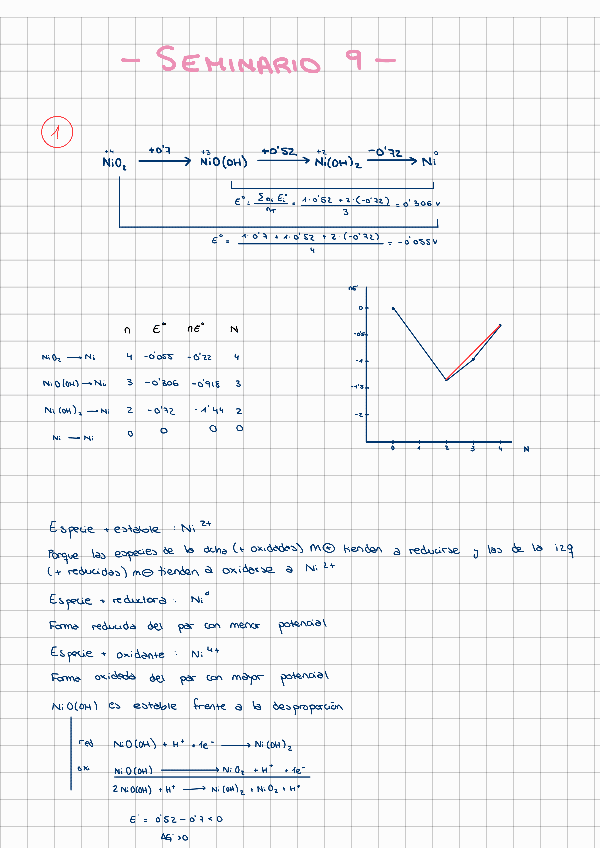 - SEMINARIO 9 -
1
+4 +3 +2 0
NiO₂ +0'7 → NiO(OH) +0'52 → Ni(OH)₂ -0'72 → Ni
E° = Σni Ei° / nT = 1·0'52 + 2·(-0'72) / 3 = -0'306 V
E° = 1·0'7 + 1·0'52 + 2·(-0'72) / 4 = -0'055 V
n E° nE° N
NiO₂ → Ni 4 -0'055 -0'22 4
NiO(OH) → Ni 3 -0'306 -0'918 3
Ni(OH)₂ → Ni 2 -0'72 -1'44 2
Ni → Ni 0 0 0 0
nE°
0
-0'5
-1
-1'5
-2
0 1 2 3 4 N
Especie + estable : Ni²⁺
Porque las especies de la dcha (+ oxidadas) m⊕ tienden a reducirse y las de la izq
(+ reducidas) m⊖ tienden a oxidarse a Ni²⁺
Especie + reductora : Ni⁰
Forma reducida del par con menor potencial
Especie + oxidante : Ni⁴⁺
Forma oxidada del par con mayor potencial
NiO(OH) es estable frente a la desproporción
red NiO(OH) + H⁺ + 1e⁻ → Ni(OH)₂
ox NiO(OH) → NiO₂ + H⁺ + 1e⁻
2NiO(OH) + H⁺ → Ni(OH)₂ + NiO₂ + H⁺
E° = 0'52 - 0'7 < 0
ΔG >0